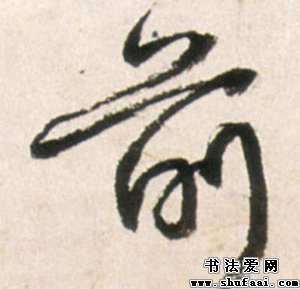 前
书法爱网
www.shufaai.com